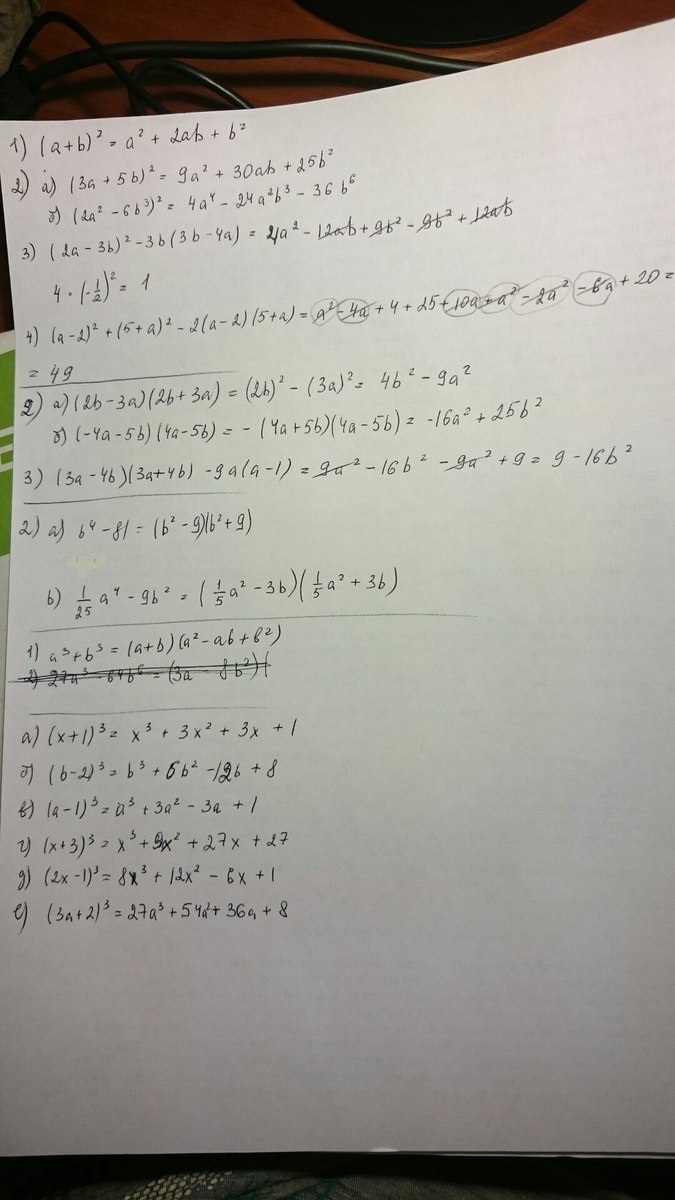 1) (a+b)² = a² + 2ab + b²
2) а) (3a + 5b)² = 9a² + 30ab + 25b²
б) (2a² - 6b³)² = 4a⁴ - 24a²b³ - 36b⁶
3) (2a - 3b)² - 3b(3b - 4a) = 4a² - 12ab + 9b² - 9b² + 12ab
4 · (-1/2)² = 1
4) (a-2)² + (5+a)² - 2(a-2)(5+a) = a² - 4a + 4 + 25 + 10a + a² - 2a² - 6a + 20 =
= 49
2) а) (2b - 3a)(2b + 3a) = (2b)² - (3a)² = 4b² - 9a²
б) (-4a - 5b)(4a - 5b) = - (4a + 5b)(4a - 5b) = -16a² + 25b²
3) (3a - 4b)(3a + 4b) - 9a(a - 1) = 9a² - 16b² - 9a² + 9 = 9 - 16b²
2) а) b⁴ - 81 = (b² - 9)(b² + 9)
b) 1/25 a⁴ - 9b² = (1/5 a² - 3b)(1/5 a² + 3b)
1) a³ + b³ = (a+b)(a² - ab + b²)
2) 27a³ - 64b⁶ = (3a - 8b²)(
а) (x+1)³ = x³ + 3x² + 3x + 1
б) (b-2)³ = b³ + 6b² - 12b + 8
в) (a-1)³ = a³ + 3a² - 3a + 1
г) (x+3)³ = x³ + 9x² + 27x + 27
д) (2x-1)³ = 8x³ + 12x² - 6x + 1
е) (3a+2)³ = 27a³ + 54a² + 36a + 8